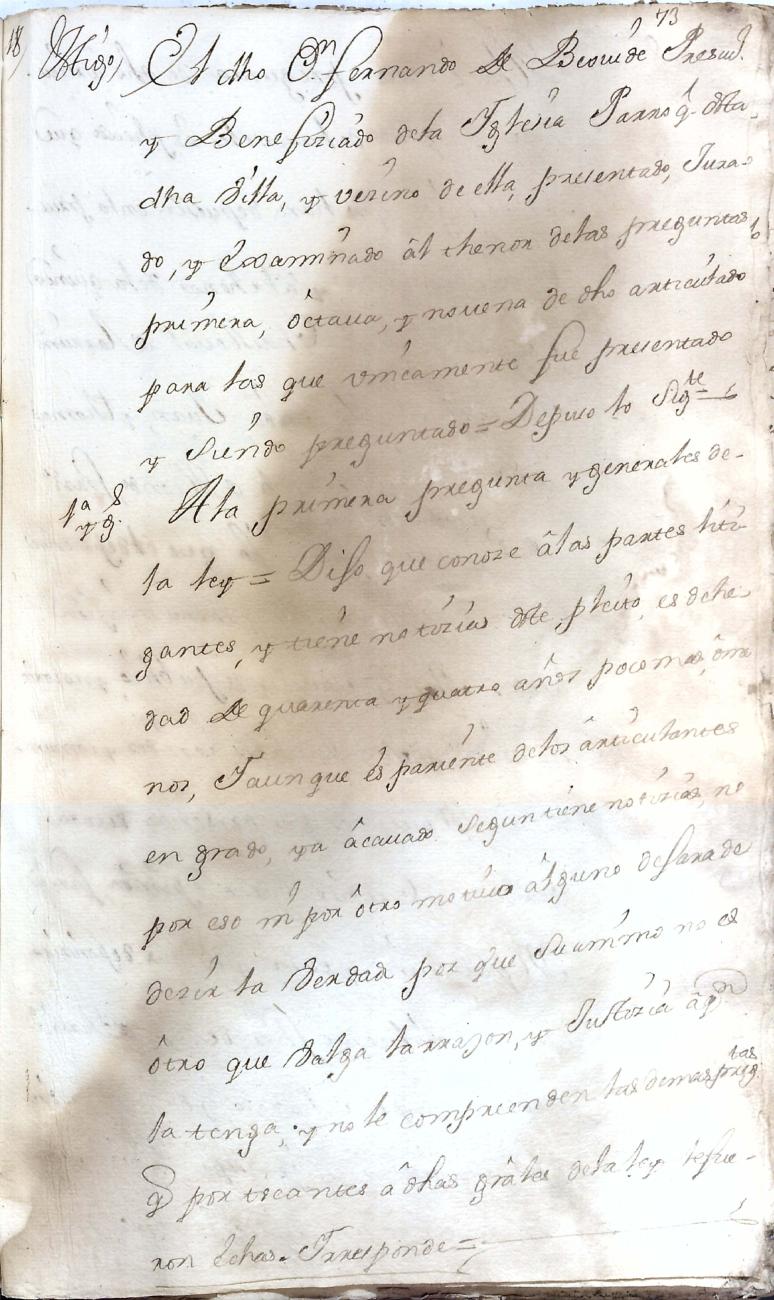 73
18) Ttigo, El dho Dn fernando de Beouide Presvi.
y Benefiziado dela Iglesia Parroql. dsta
dha Villa, y vezino de ella, presentado, Jura-
do, y Exsaminado âl thenor delas preguntas
primera, ôctaua, y novena de dho articulado
para las que vnicamente fue presentado
y siendo preguntado = Depuso lo Sigte =
1ª y gs. A la primera pregunta y generales de-
la ley = Dijo que conoze âlas partes liti-
gantes, y tiene notizias dste pleito, es de he-
dad de quarenta y quatro años poco mas, ôme
nos, Y aunque és pariente delos ârticulantes
en grado, ya âcauado segun tiene notizias, no
por eso ni por ôtro motivo âlguno dejara de
dezir la Verdad por que su animo no es
ôtro que Valga la rrazon, y Justizia â qn
la tenga, y no le comprenden las demas pregtas
q por tocantes â dhas grâles dela ley le fue-
ron êchas. Y rresponde =